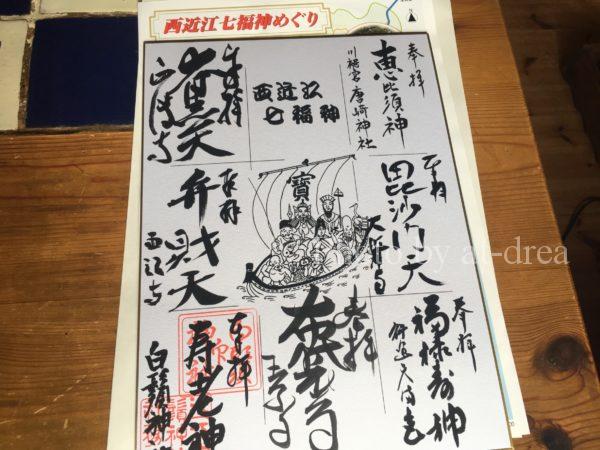 西近江七福神めぐり
奉拝
恵比須神
川裾宮唐崎神社
西近江
七福神
奉拝
大黒天
奉拝
毘沙門天
寶
奉拝
弁財天
西江寺
奉拝
福禄寿神
奉拝
布袋尊
奉拝
寿老神
白鬚神社
Photo by at-drea